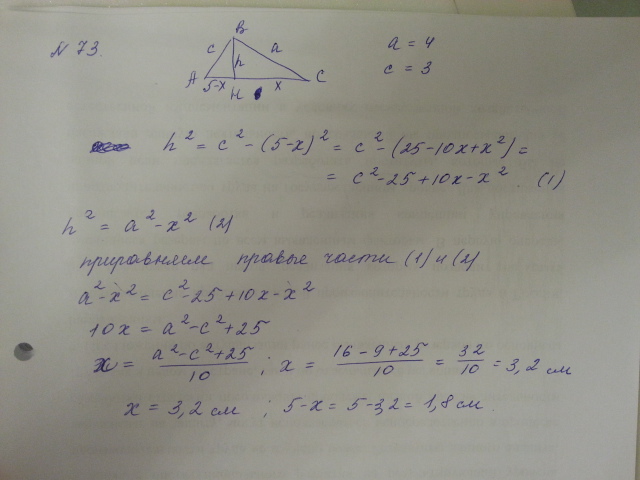 N 73.
B
c h a
A 5-x H x C
a = 4
c = 3
h² = c² - (5-x)² = c² - (25-10x+x²) =
= c² - 25 + 10x - x² (1)
h² = a² - x² (2)
приравняем правые части (1) и (2)
a² - x² = c² - 25 + 10x - x²
10x = a² - c² + 25
x = (a² - c² + 25)/10 ; x = (16 - 9 + 25)/10 = 32/10 = 3,2 см
x = 3,2 см ; 5-x = 5-3,2 = 1,8 см.